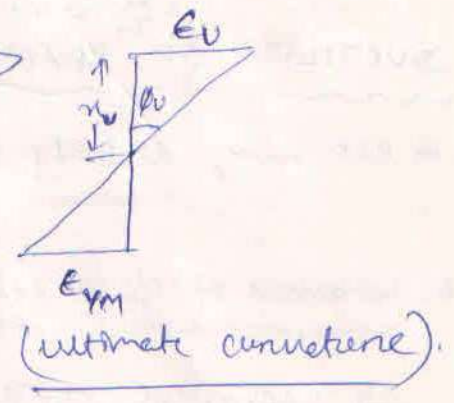 εu
xu φu
εym
(ultimate curvature).